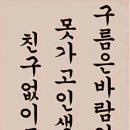 구름은바람
못가고인생
친구없이